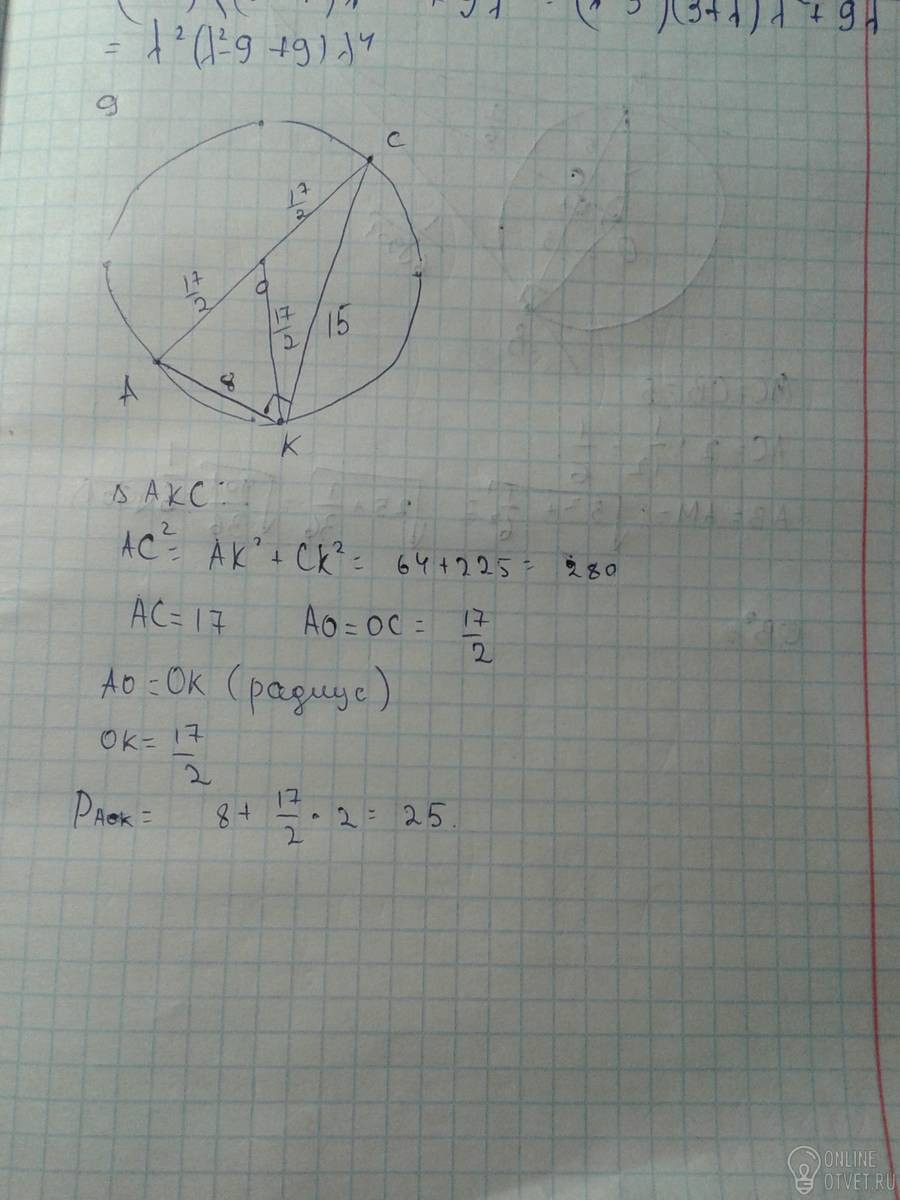 = λ²(λ²-9+9)λ⁴
9
C
17/2
17/2
O
17/2
15
A
8
K
Δ AKC:
AC² = AK² + CK² = 64+225 = 280
AC = 17 AO = OC = 17/2
AO = OK (радиус)
OK = 17/2
PAOK = 8 + 17/2 · 2 = 25.
ONLINE
OTVET.RU